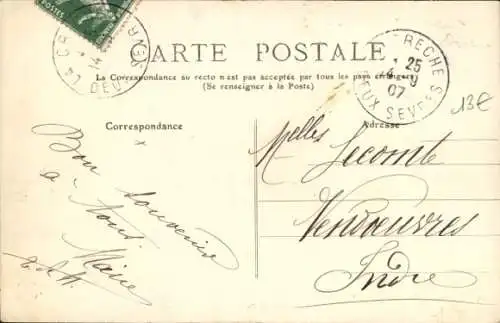 POSTES
CARTE POSTALE
La Correspondance au recto n'est pas acceptée par tous les pays étrangers
(Se renseigner à la Poste)
Correspondance
Adresse
RECHE
25
4 - 9
07
DEUX SEVRES
LA CR
14
DEUX SEVR
13€
Bon souvenir
à tous
Marie
Melles Lecomte
Vendoeuvres
Indre